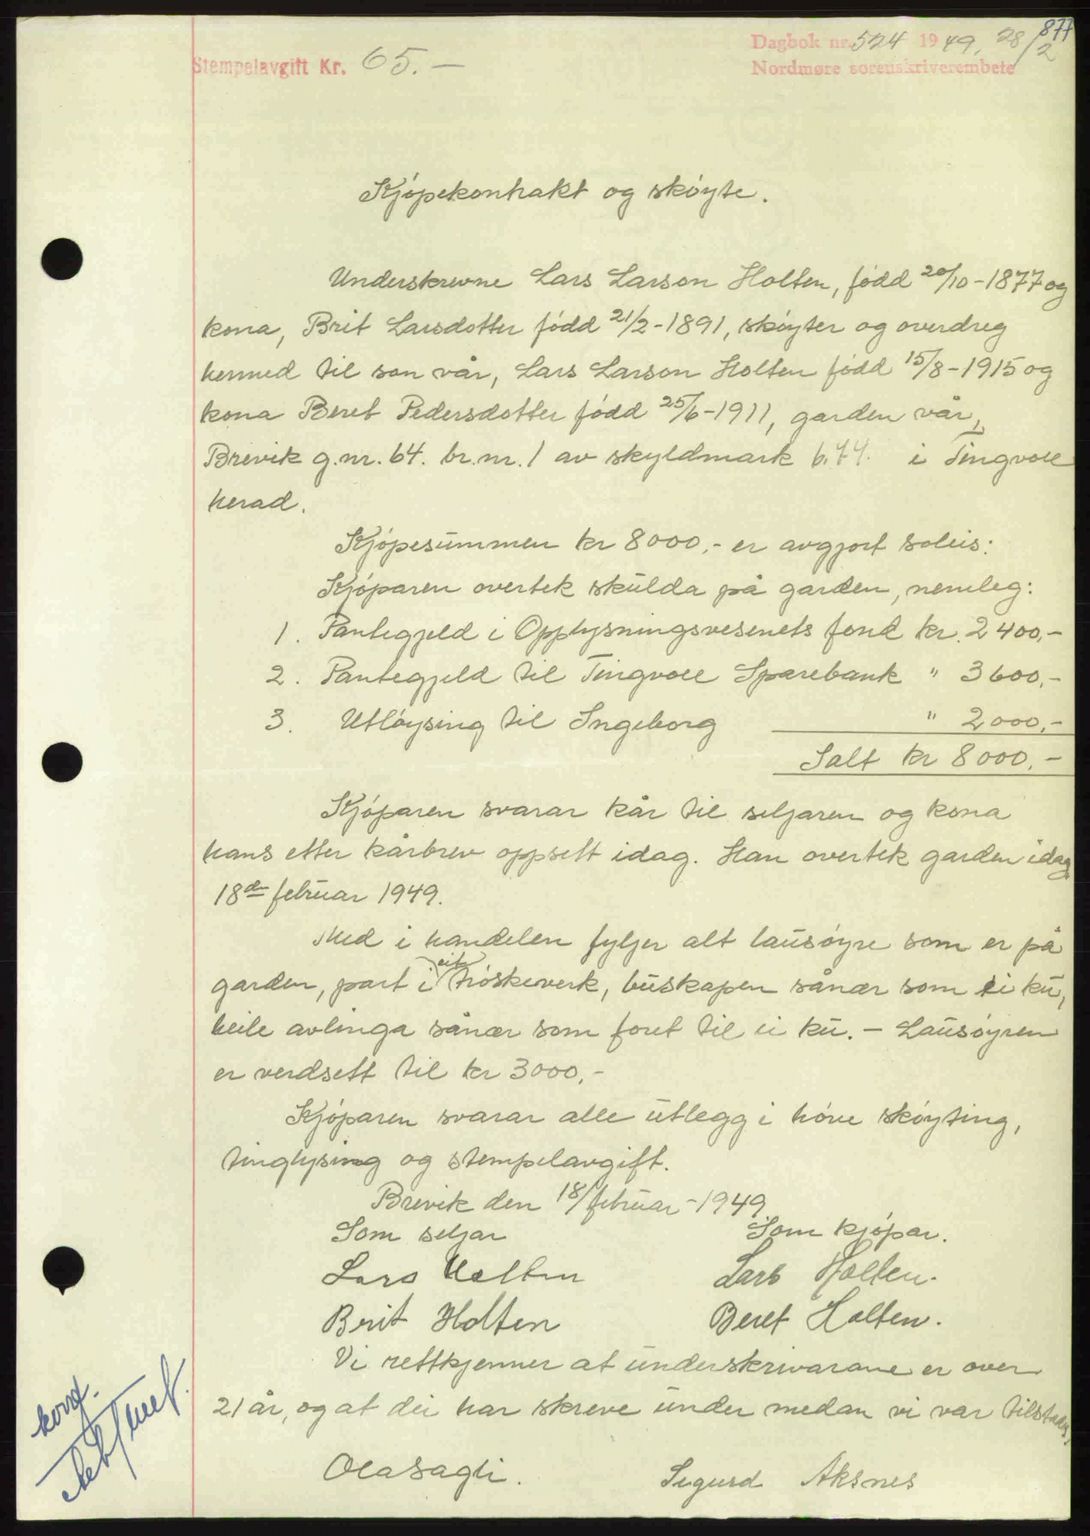 877
Stempelavgift Kr. 65.—
Dagbok nr. 524 1949, 28/2
Nordmøre sorenskriverembete
Kjøpekontrakt og skøyte.
Underskrivne Lars Larson Holten, fødd 20/10-1877 og
kona, Brit Larsdotter fødd 21/2-1891, skøyter og overdreg
hermed til son vår, Lars Larson Holten fødd 15/8-1915 og
kona Beret Pedersdotter fødd 25/6-1911, garden vår,
Brevik g.nr. 64. br.nr. 1 av skyldmark 6.74. i Tingvoll
herad.
Kjøpesummen kr 8000,- er avgjort soleis:
Kjøparen overtek skulda på garden, nemleg:
1. Pantegjeld i Opplysningsvesenets fond kr. 2400,-
2. Pantegjeld til Tingvoll Sparebank " 3600,-
3. Utløysing til Ingeborg " 2000,-
Ialt kr 8000,-
Kjøparen svarar kår til seljaren og kona
hans etter kårbrev oppsett idag. Han overtek garden idag
18de februar 1949.
Med i handelen fylgjer alt lausøyre som er på
garden, part i eit trøskeverk, buskapen sånær som ei ku,
heile avlinga sånær som foret til ei ku. — Lausøyren
er verdsett til kr 3000,-
Kjøparen svarar alle utlegg i høve skøyting,
tinglysing og stempelavgift.
Brevik den 18/februar -1949.
Som seljar Som kjøpar.
Lars Holten Lars Holten.
Brit Holten Beret Holten.
Vi rettkjenner at underskrivarane er over
21 år, og at dei har skreve under medan vi var tilstades,
Ola Sagli. Sigurd Aksnes
konf.